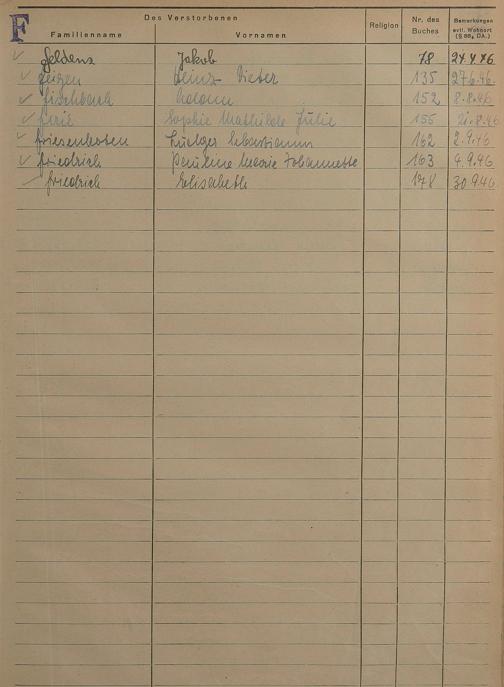 F
Des Verstorbenen
Familienname Vornamen Religion Nr. des Buches Bemerkungen evtl. Wohnort (§ 88, DA.)
Feldens Jakob 78 24.4.46
Feigen Heinz-Dieter 135 27.6.46.
Fischbach Adam 152 8.8.46
Sophie Mathilde Julie 155 21.8.46
Friesenhosten Ludger Sebastianus 162 2.9.46
Friedrich Pauline Marie Johannette 163 4.9.46
Friedrich Elisabeth 178 30.9.46